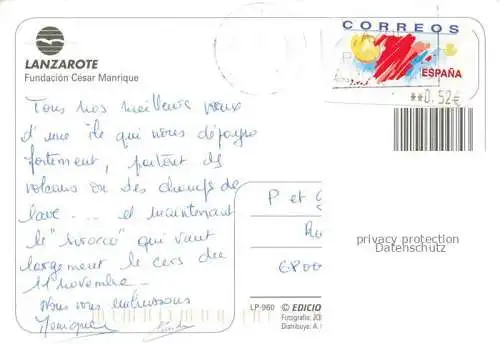 LANZAROTE
Fundación César Manrique
CORREOS
ESPAÑA
**0,52€
Tous nos meilleurs vœux
d'une île qui nous dépayse
fortement, partout des
volcans ou des champs de
lave .... et maintenant
le "sirocco" qui vaut
largement le cers du
11 novembre.
Nous vous embrassons
Monique
P et G
privacy protection
Datenschutz
LP-960 © EDICIO
Fotografía: JO
Distribuye: A.